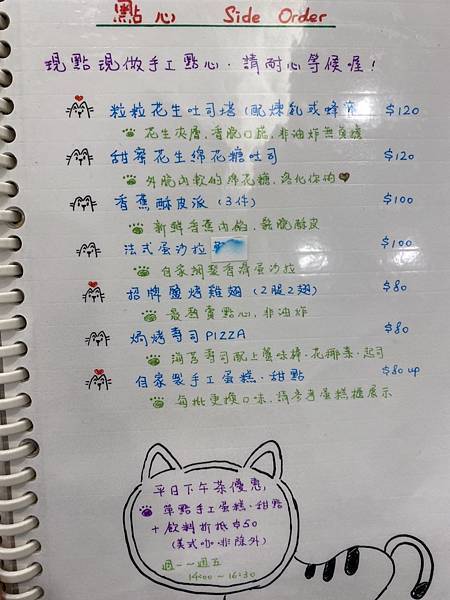 點心 Side Order
現點現做手工點心．請耐心等候喔！
粒粒花生吐司塔（配煉乳或蜂蜜 $120
花生夾層，香脆口感，非油炸無負擔
甜蜜花生綿花糖吐司 $120
外脆內軟的綿花糖，溶化你的
香蕉酥皮派（3件） $100
新鮮香蕉內餡，鬆脆酥皮
法式蛋沙拉 $100
自家調製香滑蛋沙拉
招牌鹽烤雞翅（2腿2翅） $80
最熱賣點心，非油炸
焗烤壽司PIZZA $80
海苔壽司配上蟹味棒．花椰菜．起司
自家製手工蛋糕．甜點 $80 up
每批更換口味，請參考蛋糕櫃展示
平日下午茶優惠
單點手工蛋糕．甜點
+飲料折抵$50
（美式咖啡除外）
週一~週五
14:00 ~ 16:30